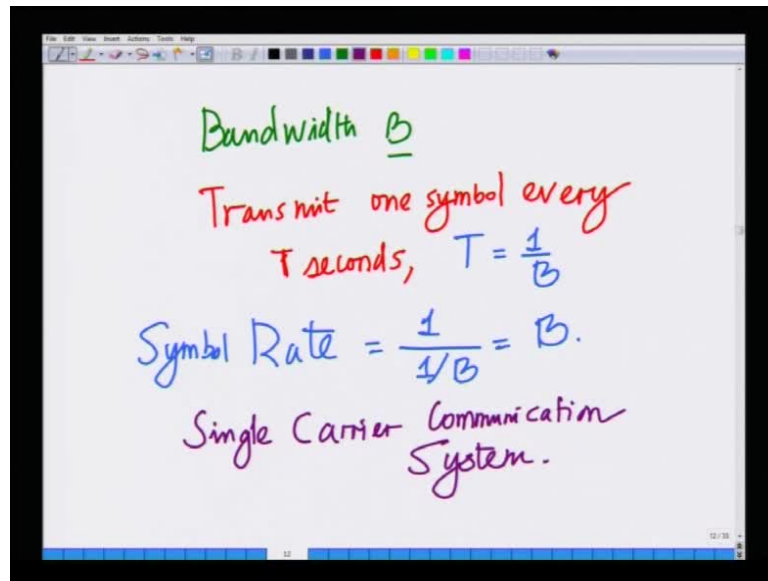 File Edit View Insert Actions Tools Help
Bandwidth B
Transmit one symbol every
T seconds, T = 1/B
Symbol Rate = 1/(1/B) = B.
Single Carrier Communication
System.
12